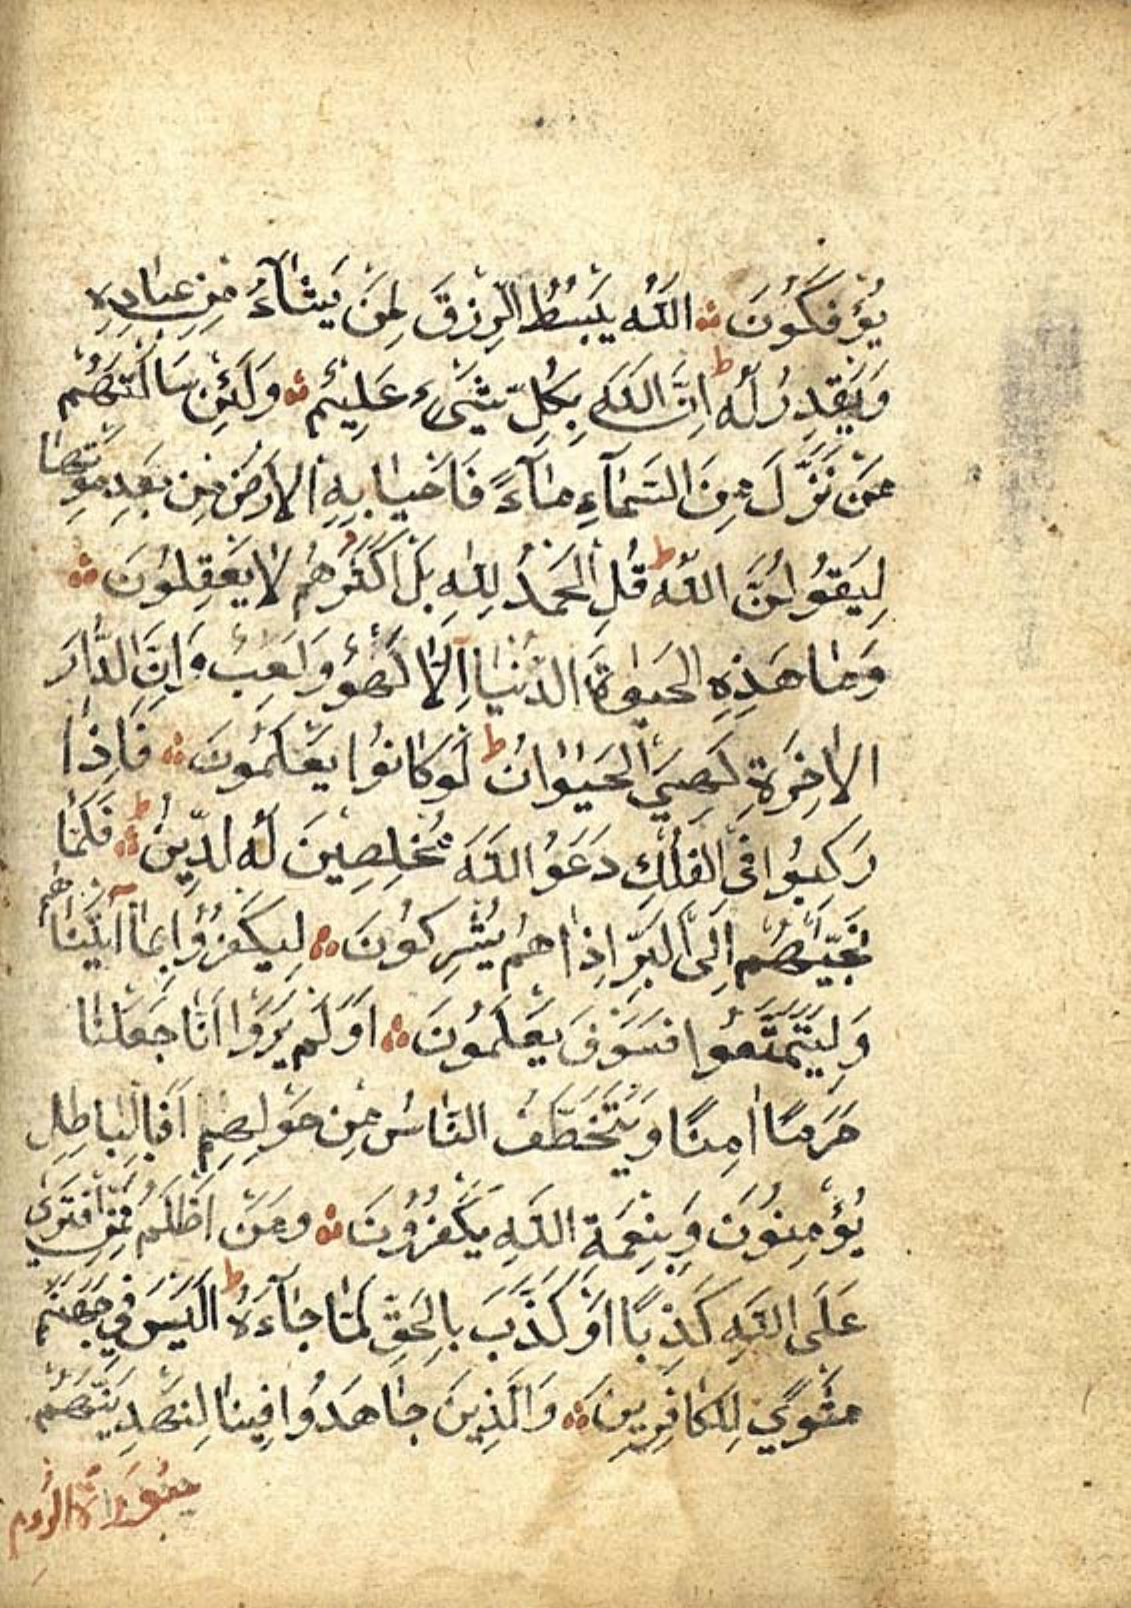 يُؤْفَكُونَ ۞ اَللّٰهُ يَبْسُطُ الرِّزْقَ لِمَنْ يَشَآءُ مِنْ عِبَادِهِ
وَيَقْدِرُ لَهُ ط اِنَّ اللّٰهَ بِكُلِّ شَيْءٍ عَلِيْمٌ ۞ وَلَئِنْ سَاَلْتَهُمْ
مَنْ نَزَّلَ مِنَ السَّمَآءِ مَآءً فَاَحْيَا بِهِ الْاَرْضَ مِنْ بَعْدِ مَوْتِهَا
لَيَقُوْلُنَّ اللّٰهُ ط قُلِ الْحَمْدُ لِلّٰهِ بَلْ اَكْثَرُهُمْ لَا يَعْقِلُوْنَ ۞
وَمَا هٰذِهِ الْحَيٰوةُ الدُّنْيَا اِلَّا لَهْوٌ وَلَعِبٌ وَاِنَّ الدَّارَ
الْاٰخِرَةَ لَهِيَ الْحَيَوَانُ ط لَوْ كَانُوْا يَعْلَمُوْنَ ۞ فَاِذَا
رَكِبُوْا فِي الْفُلْكِ دَعَوُا اللّٰهَ مُخْلِصِيْنَ لَهُ الدِّيْنَ ط ۞ فَلَمَّا
نَجّٰيهُمْ اِلَى الْبَرِّ اِذَا هُمْ يُشْرِكُوْنَ ۞ لِيَكْفُرُوْا بِمَآ اٰتَيْنَاهُمْ
وَلِيَتَمَتَّعُوْا فَسَوْفَ يَعْلَمُوْنَ ۞ اَوَلَمْ يَرَوْا اَنَّا جَعَلْنَا
حَرَمًا اٰمِنًا وَيُتَخَطَّفُ النَّاسُ مِنْ حَوْلِهِمْ اَفَبِالْبَاطِلِ
يُؤْمِنُوْنَ وَبِنِعْمَةِ اللّٰهِ يَكْفُرُوْنَ ۞ وَمَنْ اَظْلَمُ مِمَّنِ افْتَرٰى
عَلَى اللّٰهِ كَذِبًا اَوْ كَذَّبَ بِالْحَقِّ لَمَّا جَآءَهُ ط اَلَيْسَ فِي جَهَنَّمَ
مَثْوًى لِلْكَافِرِيْنَ ۞ وَالَّذِيْنَ جَاهَدُوْا فِيْنَا لَنَهْدِيَنَّهُمْ
سورة الروم